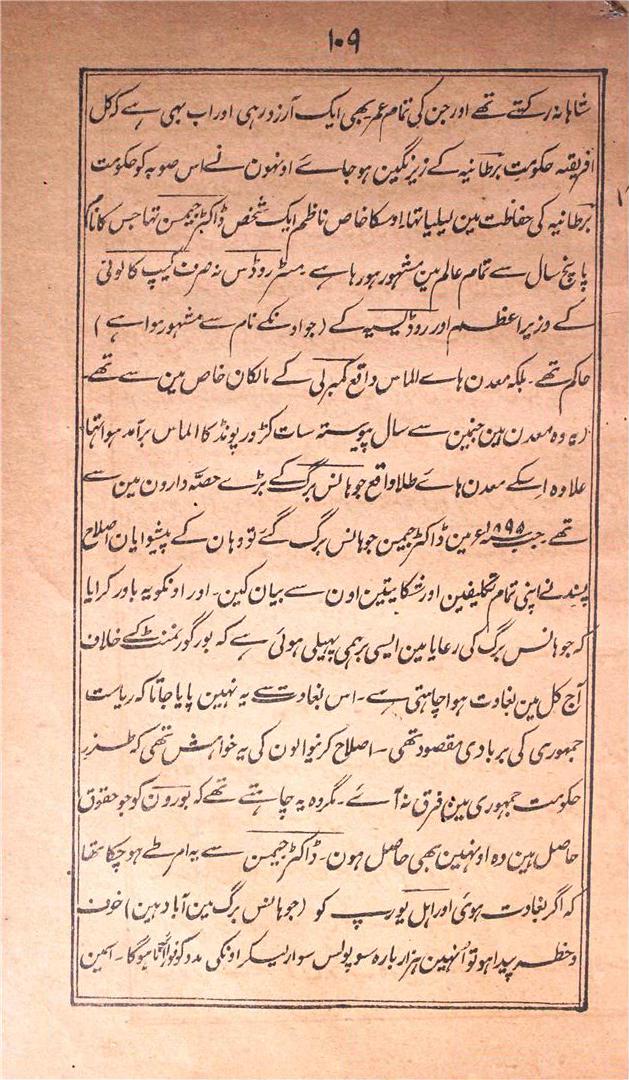 ۱۰۹
شاہانہ رکہتے تھے اور جن کی تمام عمر بھی ایک آرزو رہی اور اب بھی ہے کہ کل
افریقہ حکومت برطانیہ کے زیر نگین ہو جاے اونہون نے اس صوبہ کو حکومت
برطانیہ کی حفاظت مین لیلیا تھا۔ اوسکا خاص ناظم ایک شخص ڈاکٹر جیمسن تہا جس کا نام
پانچ سال سے تمام عالم مین مشہور ہو رہا ہے۔ مسٹر روڈس نہ صرف کیپ کالونی
کے وزیر اعظم اور روڈیسیہ کے (جو اونکے نام سے مشہور ہوا ہے)
حاکم تھے۔ بلکہ معدن ہاے الماس واقع کمبرلی کے مالکان خاص مین سے تھے۔
(یہ وہ معدن ہین جنمین سے سال پیوستہ سات کڑور پونڈ کا الماس برآمد ہوا تہا
علاوہ اسکے معدن ہاے طلا واقع جوہانس برگ کے بڑے حصہ دارون مین سے
تھے۔ جب ۱۸۹۵ء مین ڈاکٹر جیمسن جوہانس برگ گئے تو وہان کے پیشوایان اصلاح
پسند نے اپنی تمام تکلیفین اور شکایتین اون سے بیان کین۔ اور اونکو یہ باور کرایا
کہ جوہانس برگ کی رعایا مین ایسی برہمی پہیلی ہوئی ہے کہ بور گورنمنٹ کے خلاف
آج کل مین بغاوت ہوا چاہتی ہے۔ اس بغاوت سے یہ نہین پایا جاتا کہ ریاست
جمہوری کی بربادی مقصود تھی۔ اصلاح کرنیوالون کی یہ خواہش تھی کہ طرز
حکومت جمہوری مین فرق نہ آئے۔ مگر وہ یہ چاہتے تھے کہ بورون کو جو حقوق
حاصل ہین وہ اونہین بھی حاصل ہون۔ ڈاکٹر جیمسن سے یہ امر طے ہو چکا تھا
کہ اگر بغاوت ہوئی اور اہل یورپ کو (جو جوہانس برگ مین آباد ہین) خوف
و خطر پیدا ہو تو اُنہین ہزار بارہ سو پولس سوار لیکر اونکی مدد کو فوراً آنا ہوگا۔ اسمین